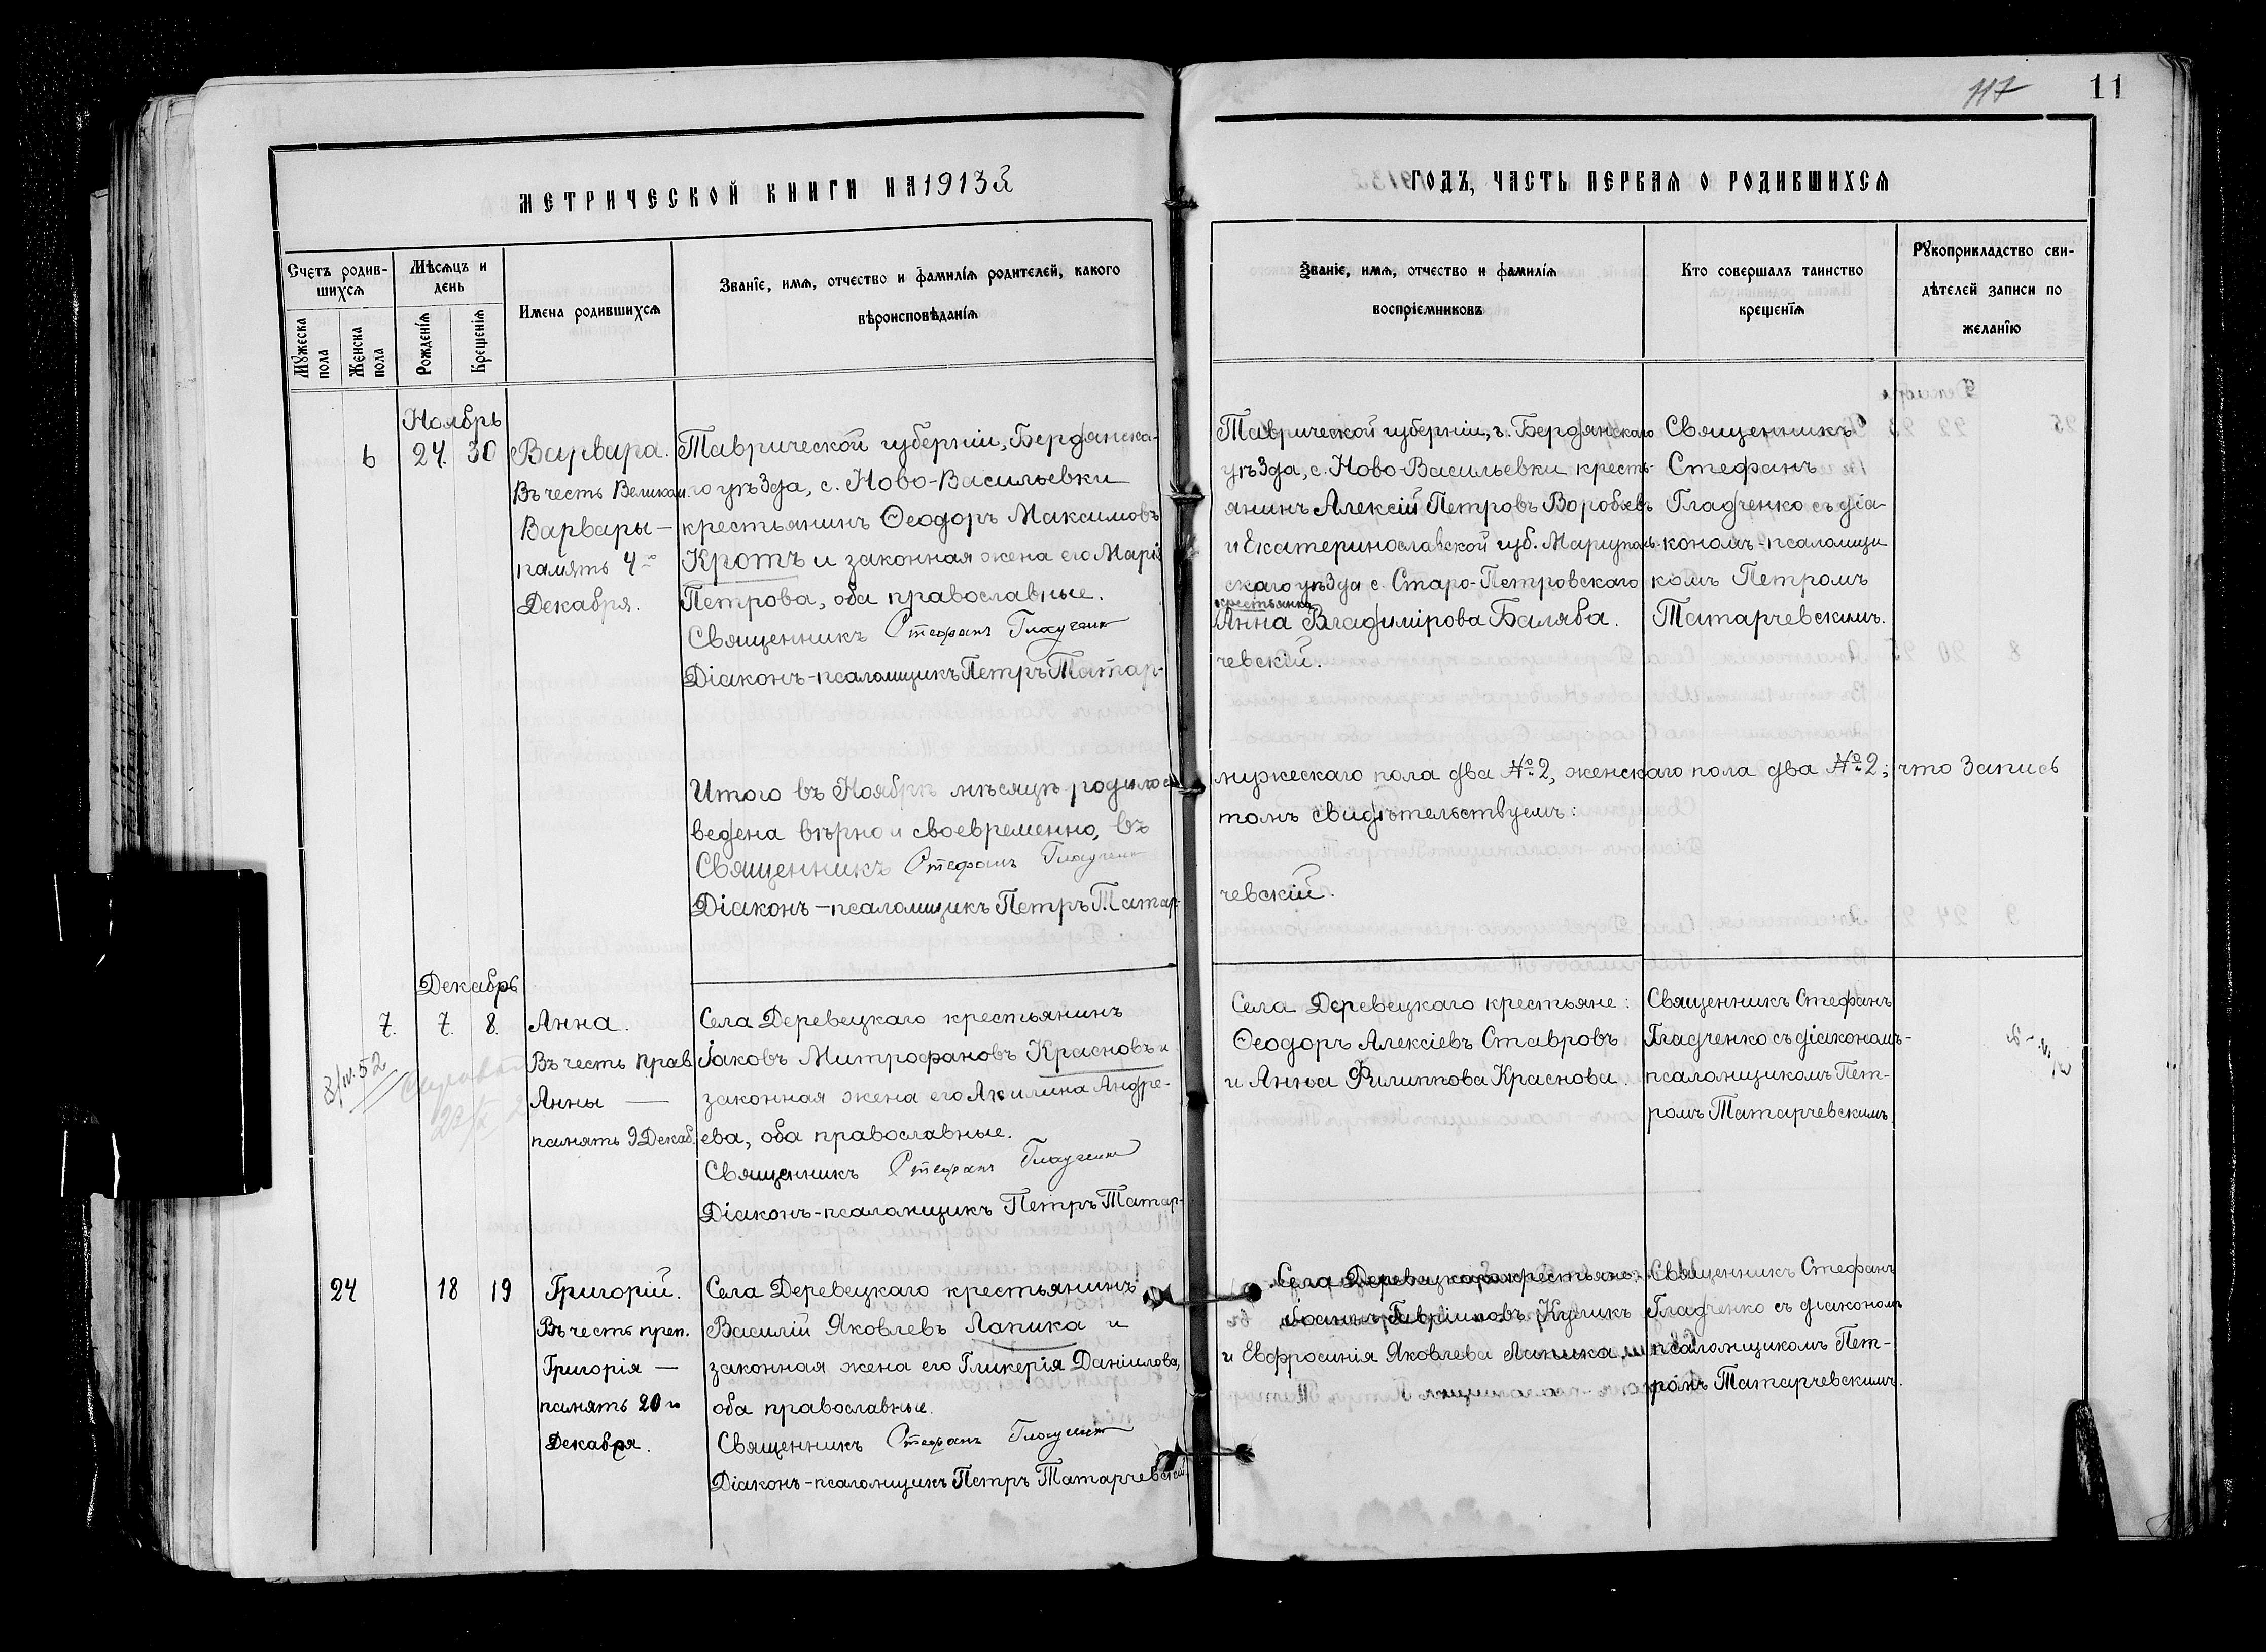 117
11
МЕТРИЧЕСКОЙ КНИГИ НА 1913й
ГОДЪ, ЧАСТЬ ПЕРВАЯ О РОДИВШИХСЯ
Счетъ родив-
шихся
Мѣсяцъ и
день
Мужеска
пола
Женска
пола
Рожденія
Крещенія
Имена родившихся
Званіе, имя, отчество и фамилія родителей, какого
вѣроисповѣданія
Званіе, имя, отчество и фамилія
воспріемниковъ
Кто совершалъ таинство
крещенія
Рукоприкладство сви-
дѣтелей записи по
желанію
Ноябрь
6
24.
30
Варвара.
Въ честь Великом.
Варвары —
память 4го
Декабря.
Таврической губерніи, Бердянска-
го уѣзда, с. Ново-Васильевки
крестьянинъ Ѳеодоръ Максимовъ
Кротъ и законная жена его Марія
Петрова, оба православные.
Священникъ Стефанъ Гладченко
Діаконъ-псаломщикъ Петръ Татар-
Таврической губерніи, Бердянскаго
уѣзда, с. Ново-Васильевки кресть-
янинъ Алексій Петровъ Воробьевъ
и Екатеринославской губ. Маріуполь-
скаго уѣзда с. Старо-Петровскаго
крестьянка
Анна Владимірова Балява.
чевскій.
Священникъ
Стефанъ
Гладченко съ діа-
кономъ-псаломщи
комъ Петромъ
Татарчевскимъ.
Итого въ Ноябрѣ мѣсяцѣ родилось
ведена вѣрно и своевременно, въ
Священникъ Стефанъ Гладченко
Діаконъ-псаломщикъ Петръ Татар-
мужескаго пола два №2, женскаго пола два №2; что запись
томъ свидѣтельствуемъ:
чевскій.
Декабрь
7.
7.
8.
Анна.
Въ честь прав.
Анны —
память 9 Декаб.
Села Деревецкаго крестьянинъ
Іаковъ Митрофановъ Красновъ и
законная жена его Акилина Андре-
ева, оба православные.
Священникъ Стефанъ Гладченко
Діаконъ-псаломщикъ Петръ Татар-
Села Деревецкаго крестьяне:
Ѳеодоръ Алексіевъ Ставровъ
и Анна Филиппова Краснова.
Священникъ Стефанъ
Гладченко съ діакономъ-
псаломщикомъ Пет-
ромъ Татарчевскимъ
24
18
19
Григорій.
Въ честь преп.
Григорія —
память 20го
Декабря.
Села Деревецкаго крестьянинъ
Василій Яковлевъ Лапика и
законная жена его Гликерія Даніилова,
оба православные.
Священникъ Стефанъ Гладченко
Діаконъ-псаломщикъ Петръ Татарчевскій
Села Деревецкаго крестьяне:
Іоаннъ Гавріиловъ Куликъ
и Евфросинія Яковлева Лапика.
Священникъ Стефанъ
Гладченко съ діакономъ
псаломщикомъ Пет-
ромъ Татарчевскимъ.